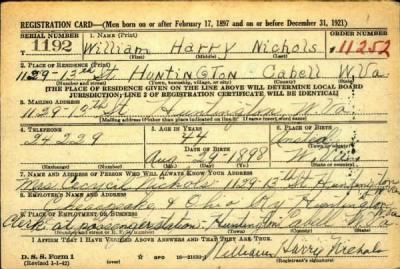 REGISTRATION CARD—(Men born on or after February 17, 1897 and on or before December 31, 1921)
SERIAL NUMBER 1. NAME (Print) ORDER NUMBER
1192 William Harry Nichols 11252
2. PLACE OF RESIDENCE (Print)
1129-13th St HUNTINGTON Cabell W.Va
(Number and street) (Town, township, village, or city) (County) (State)
[THE PLACE OF RESIDENCE GIVEN ON THE LINE ABOVE WILL DETERMINE LOCAL BOARD
JURISDICTION; LINE 2 OF REGISTRATION CERTIFICATE WILL BE IDENTICAL]
3. MAILING ADDRESS
1129-13th St Huntington W Va
[Mailing address if other than place indicated on line 2. If same insert word same]
4. TELEPHONE 5. AGE IN YEARS 6. PLACE OF BIRTH
24229 44
DATE OF BIRTH
Aug-29-1898
(Exchange) (Number) (Mo.) (Day) (Yr.) (State or country)
7. NAME AND ADDRESS OF PERSON WHO WILL ALWAYS KNOW YOUR ADDRESS
Nichols 1129-13th St Huntington
8. EMPLOYER'S NAME AND ADDRESS
Chesapeake & Ohio Ry Huntington
9. PLACE OF EMPLOYMENT OR BUSINESS
Clerk at passenger station - Huntington Cabell W.Va
(Number and street or R. F. D. number) (Town) (County) (State)
I AFFIRM THAT I HAVE VERIFIED ABOVE ANSWERS AND THAT THEY ARE TRUE.
D. S. S. Form 1 GPO
(Revised 1-1-42) William Harry Nichols